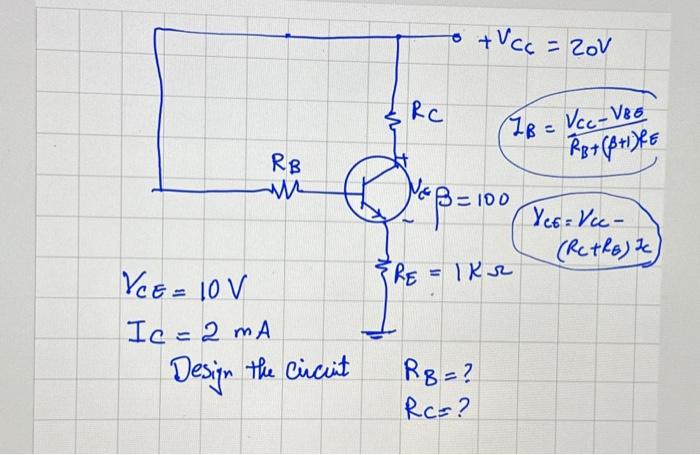 +VCC = 20V
RC
IB = VCC - VBE / RB + (β+1)RE
RB
VCE
β = 100
VCE = VCC -
(RC + RE) IC
RE = 1KΩ
VCE = 10 V
IC = 2 mA
Design the Circuit
RB = ?
RC = ?